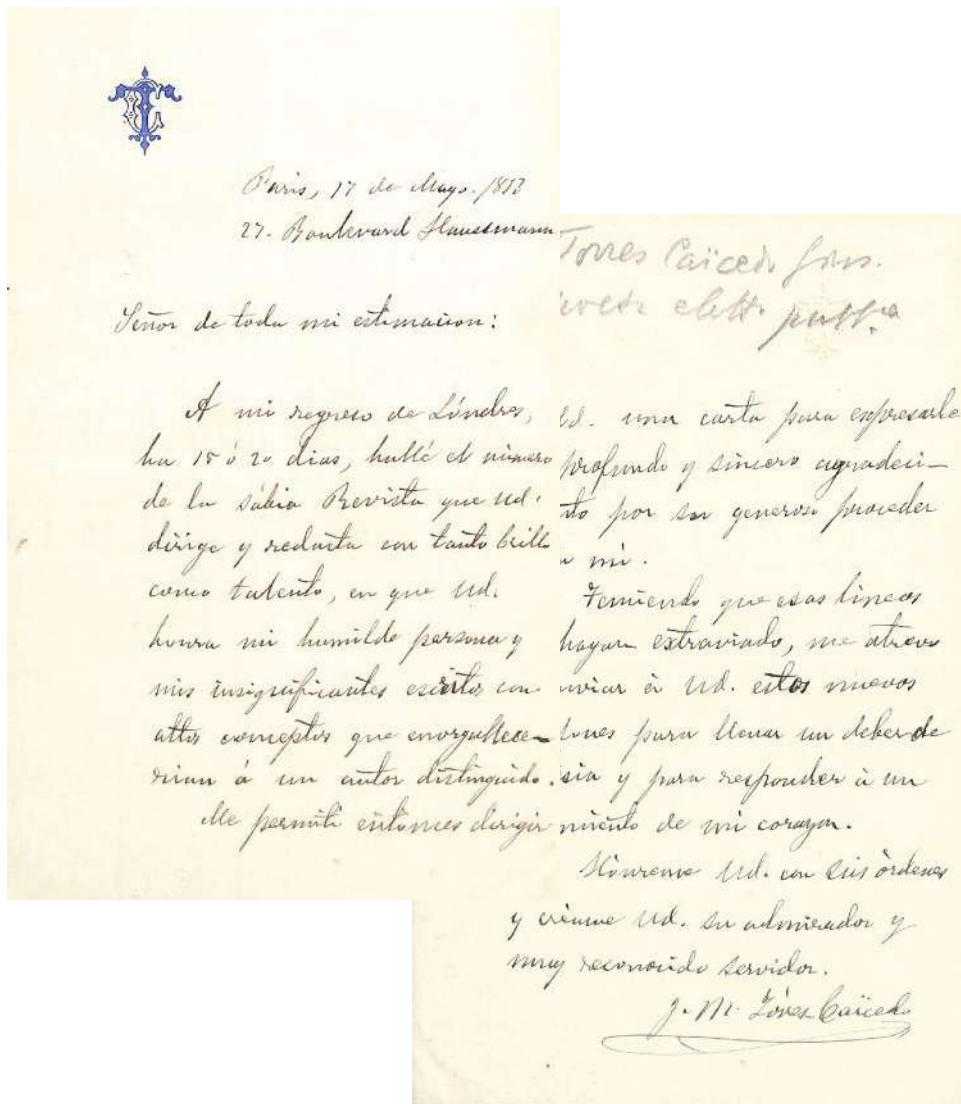 Paris, 17 de Mayo. 1883
27. Boulevard Haussmann
Señor de toda mi estimacion:
A mi regreso de Lóndres,
ha 15 ó 20 dias, hallé el número
de la sábia Revista que Ud.
dirige y redacta con tanto brillo
como talento, en que Ud.
honra mi humilde persona y
mis insignificantes escritos con
altos conceptos que enorgullece-
rian á un autor distinguido.
Me permití entonces dirigir
Torres Caïcedo
Ud. una carta para expresarle
profundo y sincero agradeci-
to por su generoso proceder
mi.
Temiendo que esas líneas
hayan extraviado, me atrevo
nviar á Ud. estos nuevos
lones para llenar un deber de
sia y para responder à un
miento de mi corazon.
Hónreme Ud. con sus órdenes
y créame Ud. su admirador y
muy reconocido servidor.
J. M. Tórres Caïcedo